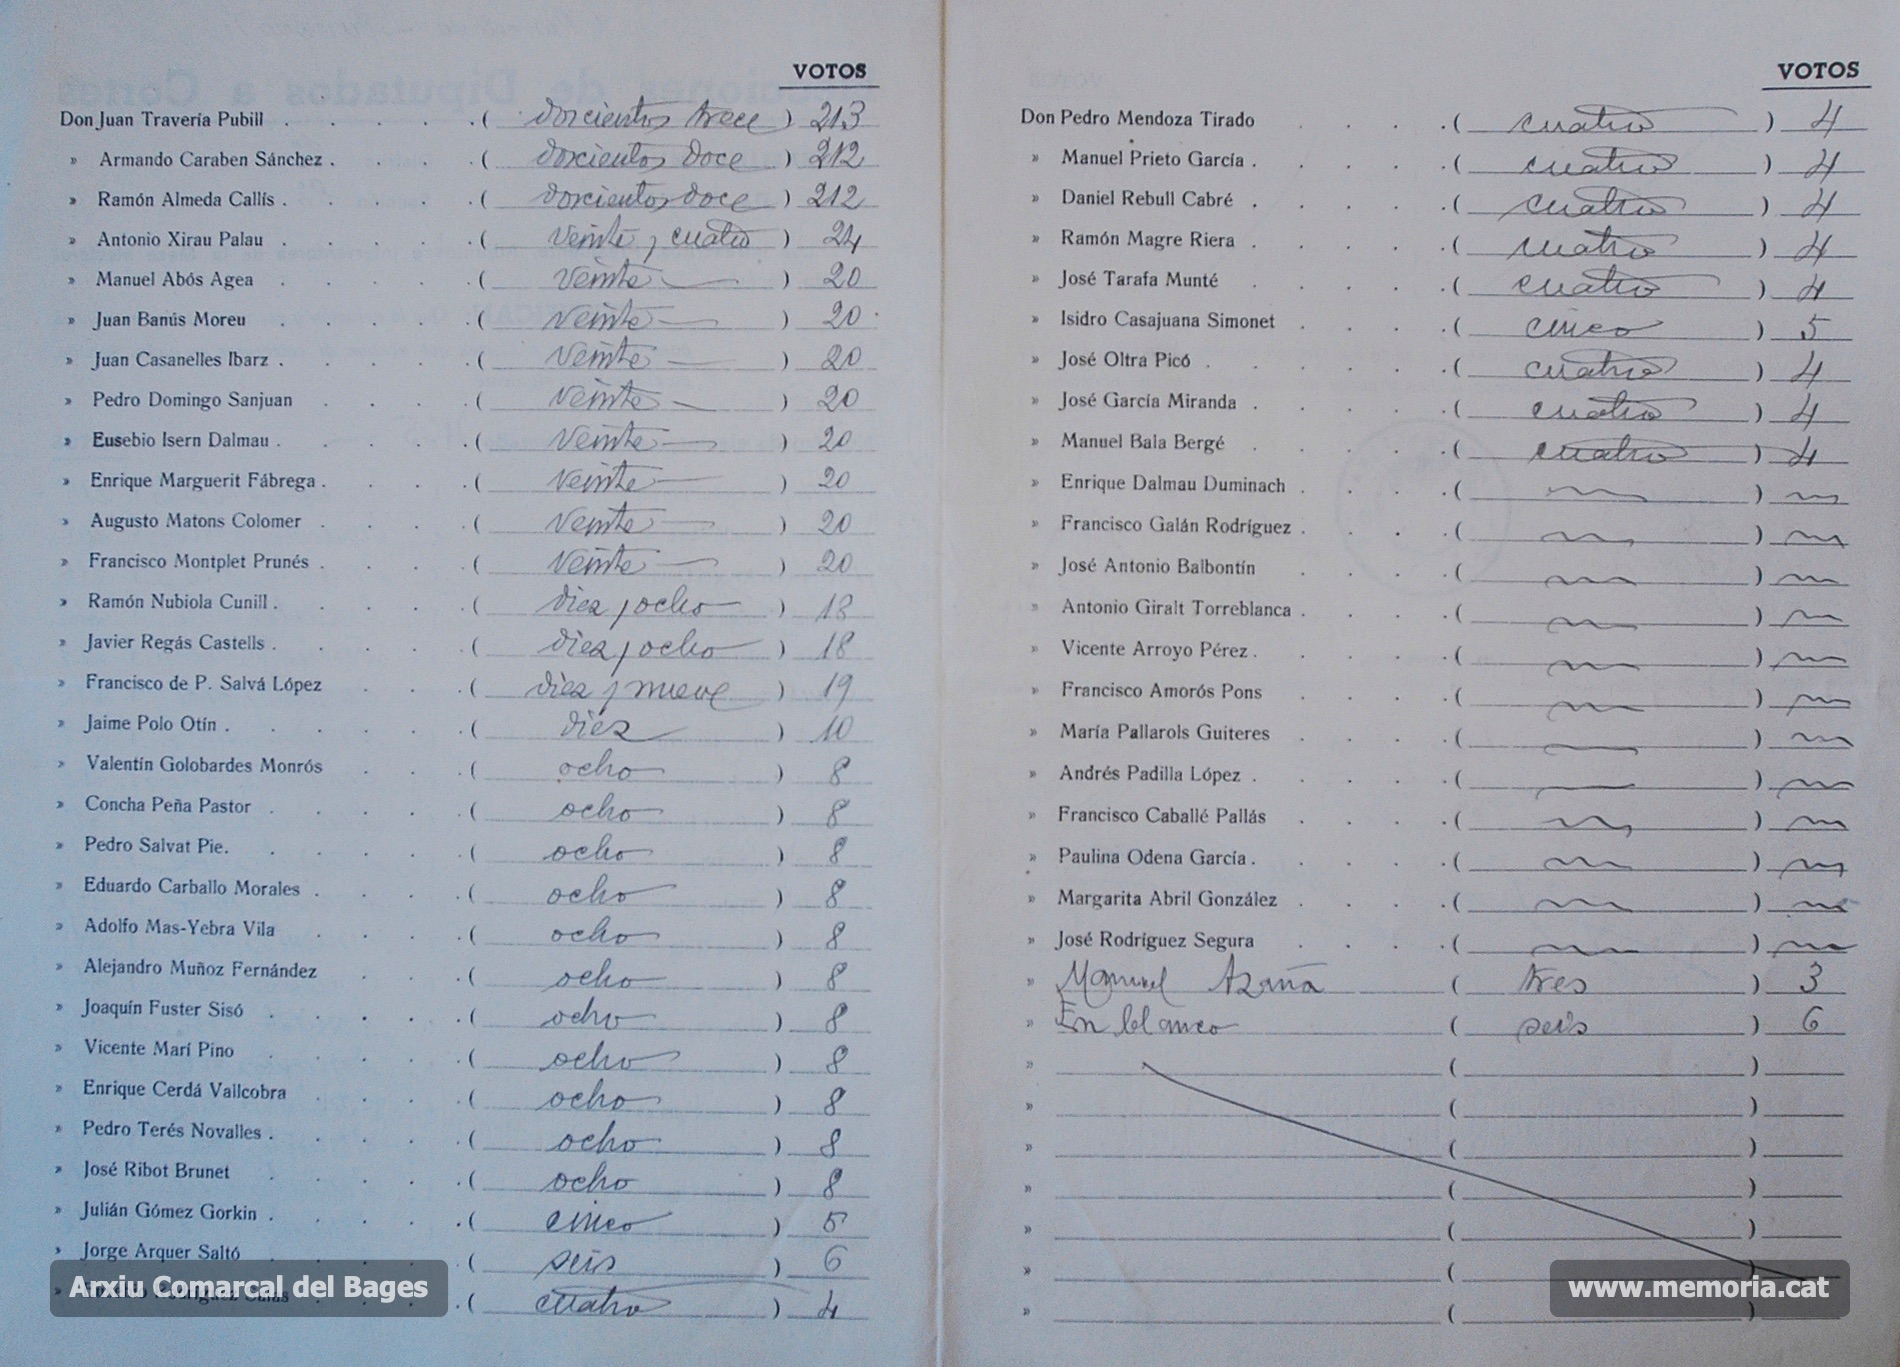 VOTOS
Don Juan Travería Pubill . . . . . ( dorcientos trece ) 213
» Armando Caraben Sánchez . . . . ( dorcientos doce ) 212
» Ramón Almeda Callís . . . . . ( dorcientos doce ) 212
» Antonio Xirau Palau . . . . . ( veinte y cuatro ) 24
» Manuel Abós Agea . . . . . ( veinte ) 20
» Juan Banús Moreu . . . . . ( veinte ) 20
» Juan Casanelles Ibarz . . . . . ( veinte ) 20
» Pedro Domingo Sanjuan . . . . ( veinte ) 20
» Eusebio Isern Dalmau . . . . . ( veinte ) 20
» Enrique Marguerit Fábrega . . . . ( veinte ) 20
» Augusto Matons Colomer . . . . ( veinte ) 20
» Francisco Montplet Prunés . . . . ( veinte ) 20
» Ramón Nubiola Cunill . . . . . ( diez y ocho ) 18
» Javier Regás Castells . . . . . ( diez y ocho ) 18
» Francisco de P. Salvá López . . . ( diez y nueve ) 19
» Jaime Polo Otín . . . . . . ( diez ) 10
» Valentín Golobardes Monrós . . . ( ocho ) 8
» Concha Peña Pastor . . . . . ( ocho ) 8
» Pedro Salvat Pie. . . . . . ( ocho ) 8
» Eduardo Carballo Morales . . . . ( ocho ) 8
» Adolfo Mas-Yebra Vila . . . . ( ocho ) 8
» Alejandro Muñoz Fernández . . . ( ocho ) 8
» Joaquín Fuster Sisó . . . . . ( ocho ) 8
» Vicente Marí Pino . . . . . ( ocho ) 8
» Enrique Cerdá Vallcobra . . . . ( ocho ) 8
» Pedro Terés Novalles . . . . . ( ocho ) 8
» José Ribot Brunet . . . . . ( ocho ) 8
» Julián Gómez Gorkin . . . . . ( cinco ) 5
» Jorge Arquer Saltó . . . . . ( seis ) 6
( cuatro ) 4
VOTOS
Don Pedro Mendoza Tirado . . . . ( cuatro ) 4
» Manuel Prieto García . . . . . ( cuatro ) 4
» Daniel Rebull Cabré . . . . . ( cuatro ) 4
» Ramón Magre Riera . . . . . ( cuatro ) 4
» José Tarafa Munté . . . . . ( cuatro ) 4
» Isidro Casajuana Simonet . . . . ( cinco ) 5
» José Oltra Picó . . . . . . ( cuatro ) 4
» José García Miranda . . . . . ( cuatro ) 4
» Manuel Bala Bergé . . . . . ( cuatro ) 4
» Enrique Dalmau Duminach . . . . ( )
» Francisco Galán Rodríguez . . . . ( )
» José Antonio Balbontín . . . . ( )
» Antonio Giralt Torreblanca . . . . ( )
» Vicente Arroyo Pérez . . . . . ( )
» Francisco Amorós Pons . . . . ( )
» María Pallarols Guiteres . . . . ( )
» Andrés Padilla López . . . . . ( )
» Francisco Caballé Pallás . . . . ( )
» Paulina Odena García . . . . . ( )
» Margarita Abril González . . . . ( )
» José Rodríguez Segura . . . . ( )
» Manuel Azaña ( tres ) 3
» En blanco ( seis ) 6
» ( )
» ( )
» ( )
» ( )
» ( )
» ( )
» ( )
Arxiu Comarcal del Bages
www.memoria.cat